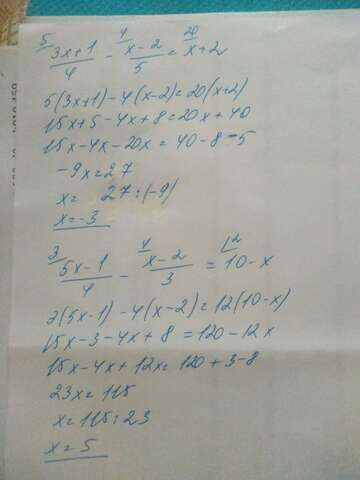 5/ 3x+1/4 - 4/ x-2/5 = 20/ x+2
5(3x+1)-4(x-2)=20(x+2)
15x+5-4x+8=20x+40
15x-4x-20x=40-8-5
-9x=27
x= 27:(-9)
x=-3
3/ 5x-1/4 - 4/ x-2/3 = 12/ 10-x
3(5x-1)-4(x-2)=12(10-x)
15x-3-4x+8=120-12x
15x-4x+12x=120+3-8
23x=115
x=115:23
x=5